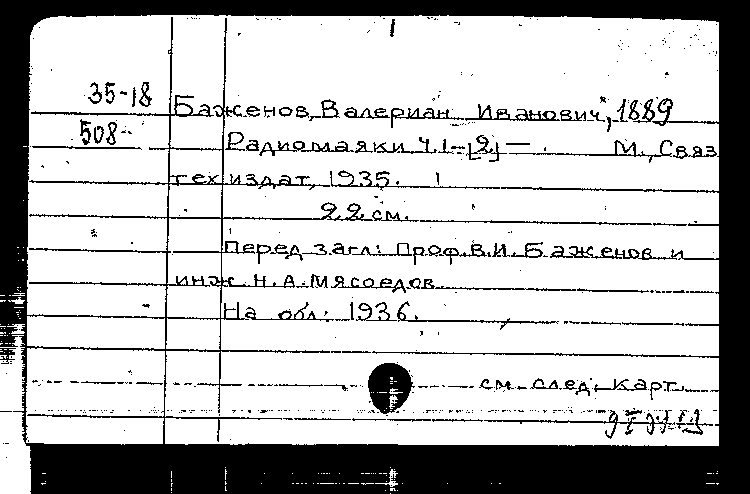 35-18 Баженов, Валериан Иванович, 1889
508- Радиомаяки Ч.1-[2] — . М., Связ
техиздат, 1935.
22 см.
Перед загл: Проф. В.И. Баженов и
инж. Н.А. Мясоедов.
На обл: 1936.
см. след. карт.